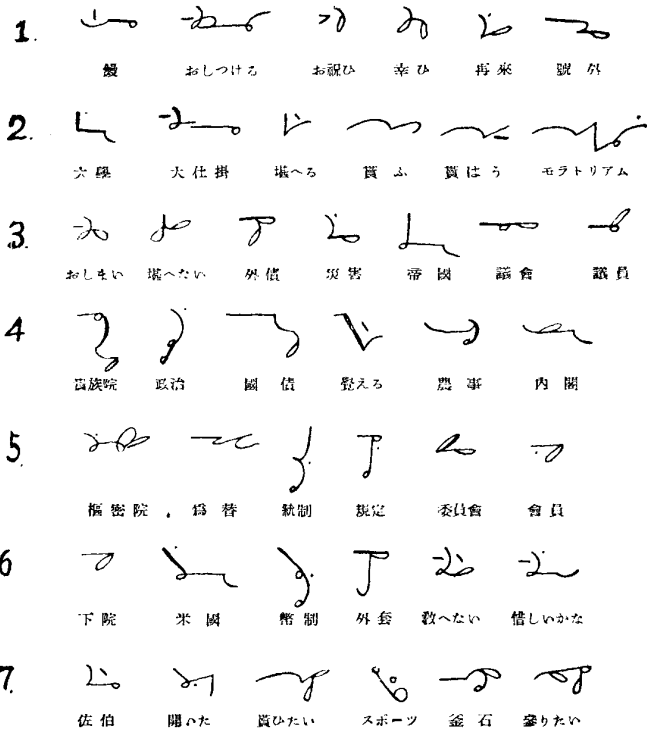 1. 鰻 おしつける お祝ひ 幸ひ 再來 號外
2. 大仕掛 堪へる 貰ふ 貰はう モラトリアム
3. おしまい 堪へない 外債 災害 帝國 議會 議員
4 貴族院 政治 國債 覺える 農事 内閣
5. 樞密院 爲替 統制 規定 委員會 會員
6 下院 米國 幣制 外套 敎へない 惜しいかな
7. 佐伯 開いた 貰ひたい スポーツ 釜石 參りたい